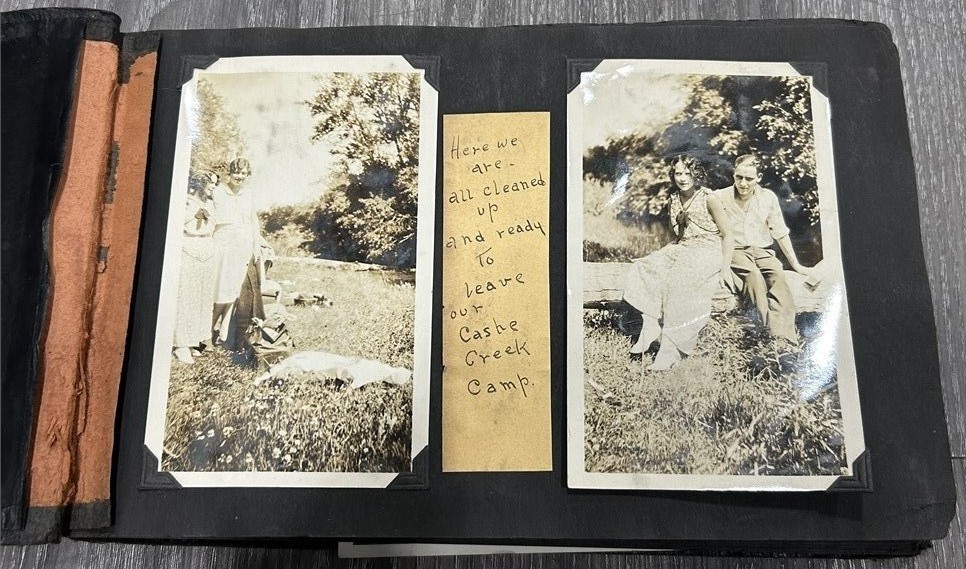 Here we
are-
all cleaned
up
and ready
to
leave
our
Cashe
Creek
Camp.